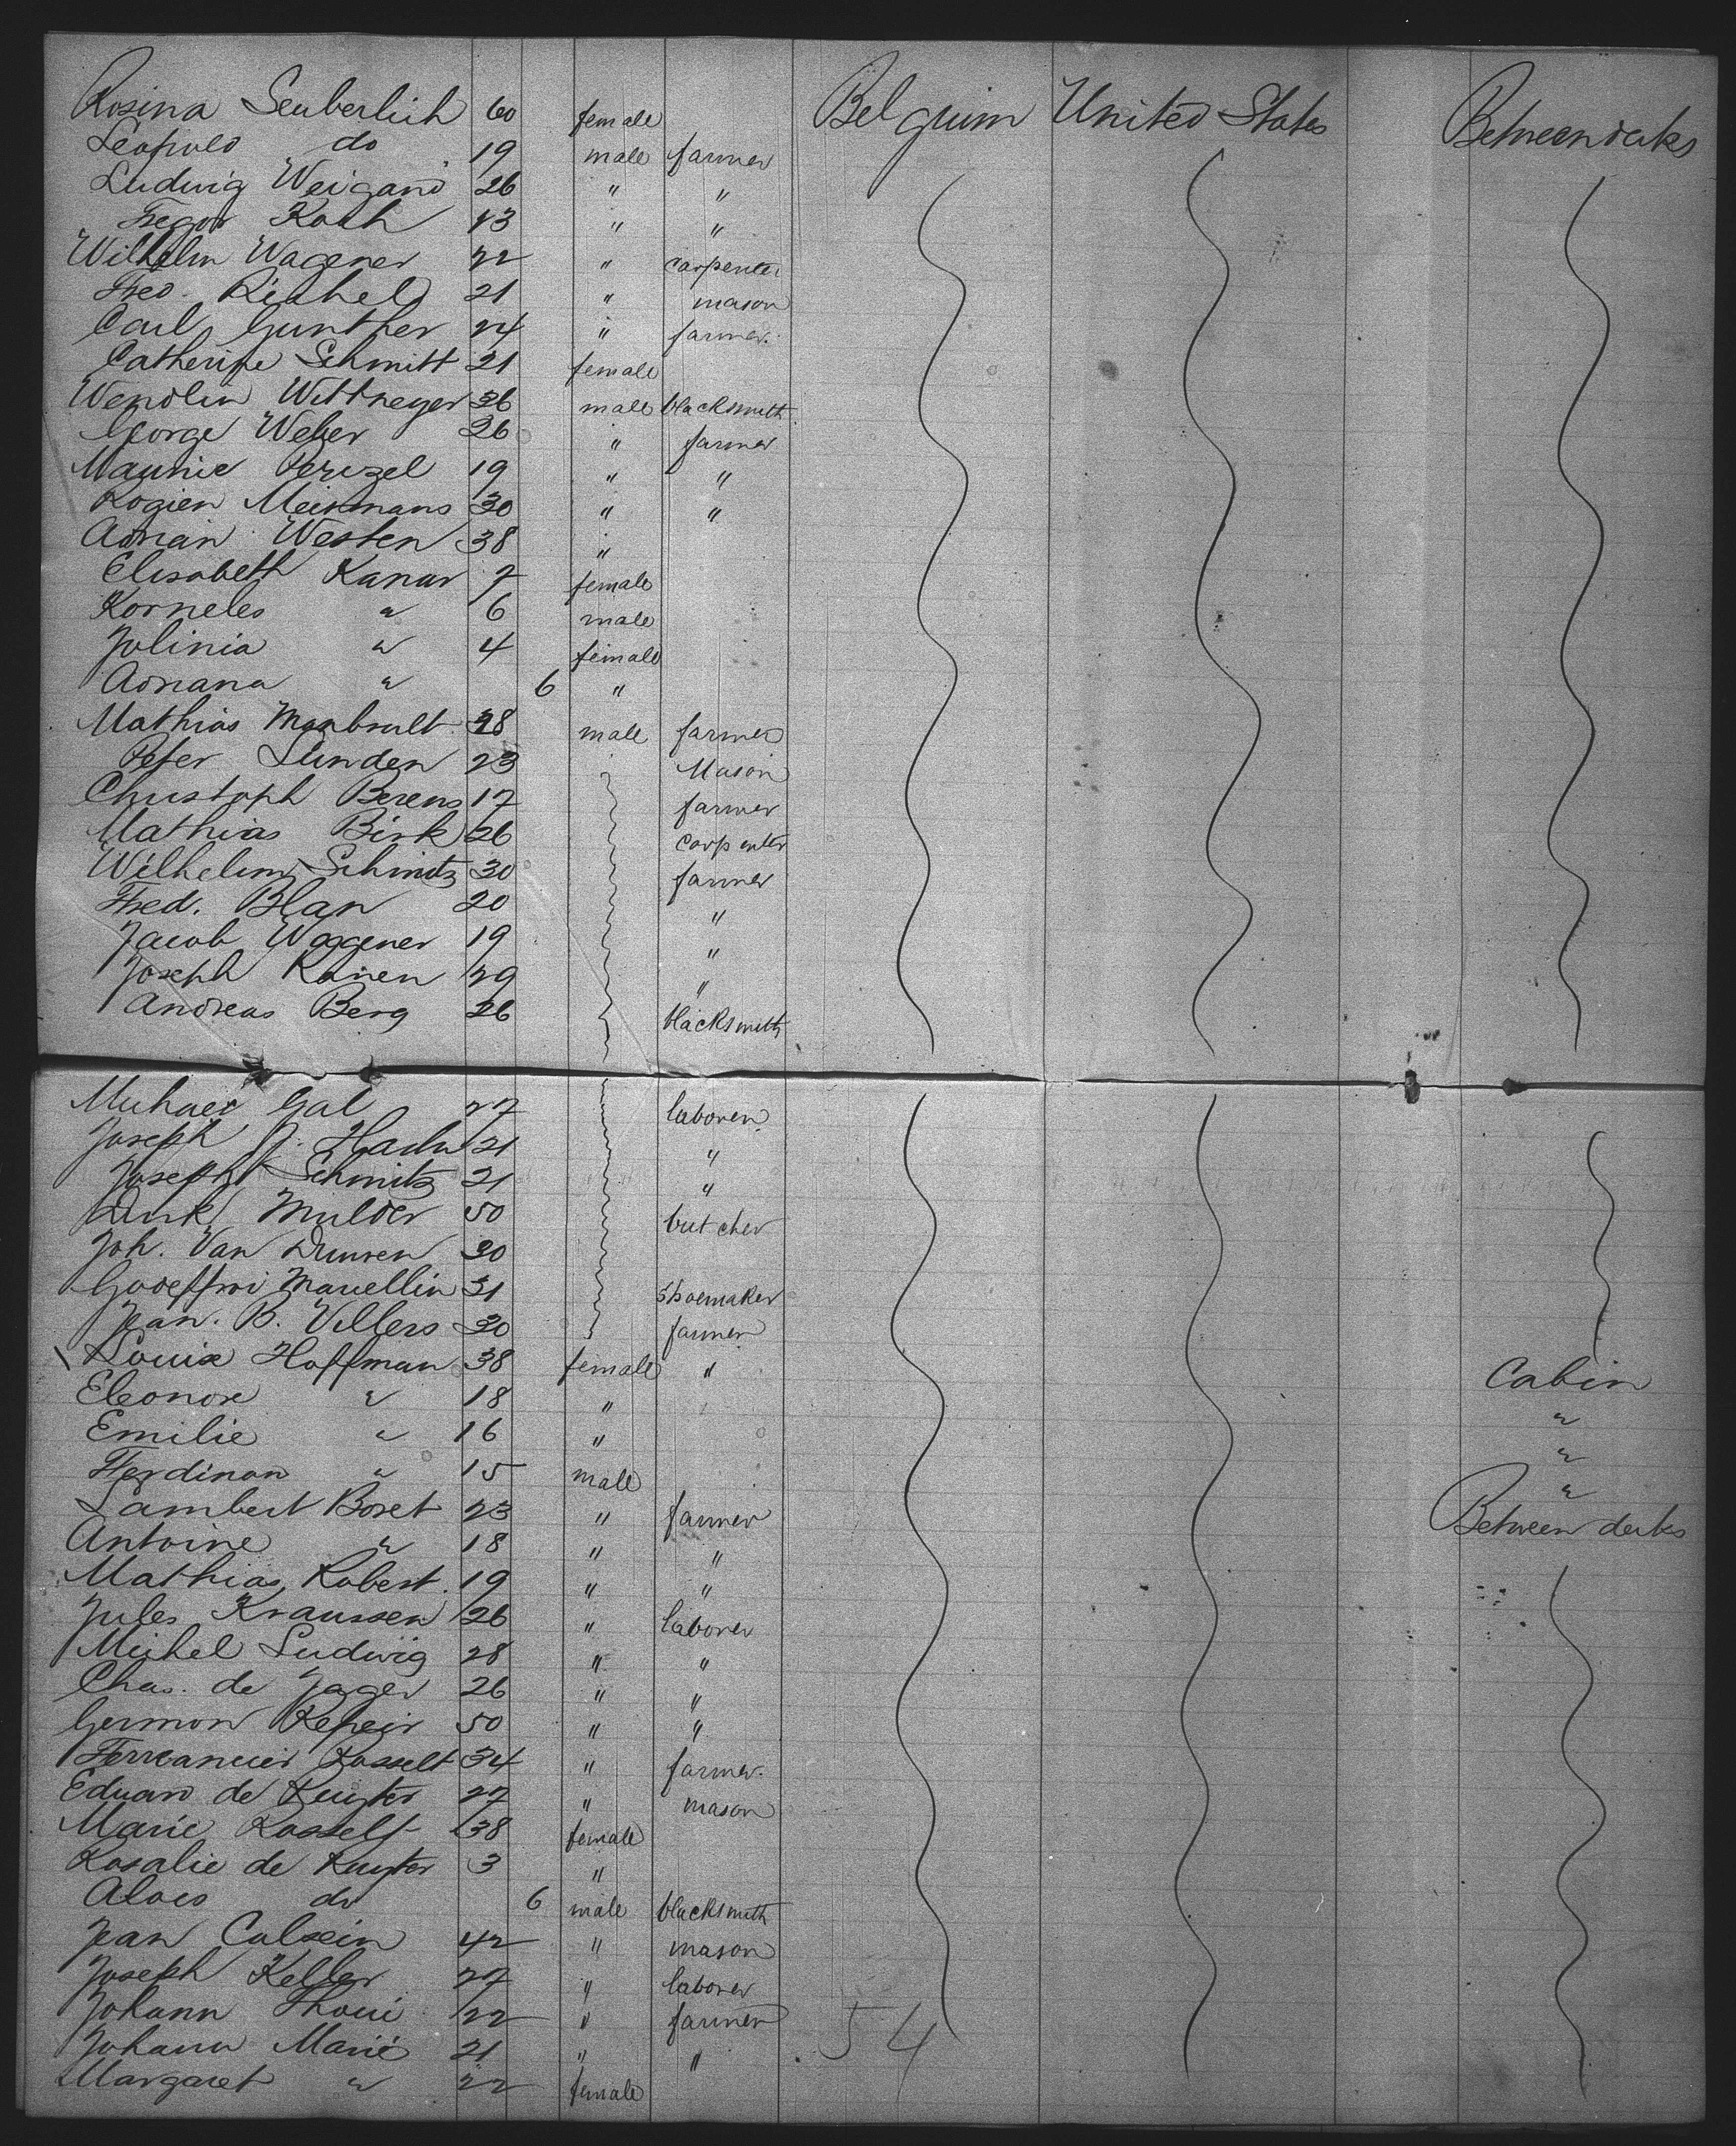 Rosina Seuberlich 60 female Belguim United States Betweendecks
Leopold do 19 male farmer
Ludwig Weigand 26 " "
Koch 43 " "
Wilhelm Wagener 22 " carpenter
Fred. 21 " mason
Carl Gunther 24 " farmer.
Catherine Schmitt 21 female
Wendlin Wittneyer 36 male blacksmith
George Weber 26 " farmer
19 " "
30 " "
Adrian Westen 38 "
Elisabeth Kanar 7 female
Korneles " 6 male
Jolinia " 4 female
Adriana " 6 "
Mathias 28 male farmer
Peter Lunden 23 Mason
Christoph Berens 17 farmer
Mathias Birk 26 carpenter
Wilhelm Schmitz 30 farmer
Fred. Blan 20 "
Jacob Waggener 19 "
Joseph 29 "
Andreas Berg 26 blacksmith
Gal 27 laborer.
Joseph J. 21 "
Joseph Schmitz 21 "
Dirk Mulder 50 butcher
Joh. Van 30
31 shoemaker
Jean. B. Villers 30 farmer
Louise Hoffman 38 female " Cabin
Eleonore " 18 " "
Emilie " 16 " "
Ferdinan " 15 male "
Lambert Boret 23 " farmer Between decks
Antoine " 18 " "
Mathias Robert. 19 " "
Jules Kraussen 26 " laborer
Michel Ludwig 28 " "
Chas. de Jager 26 " "
Germon 50 " "
Rosselt 34 " farmer.
Eduard de Ruyter 27 " mason
Marie Rosselt 38 female
Rosalie de Ruyter 3 "
Alois do 6 male blacksmith
Jean 42 " mason
Joseph Keller 27 " laborer
Johann 22 " farmer 54
Johann Marie 21 " "
Margaret " 22 female